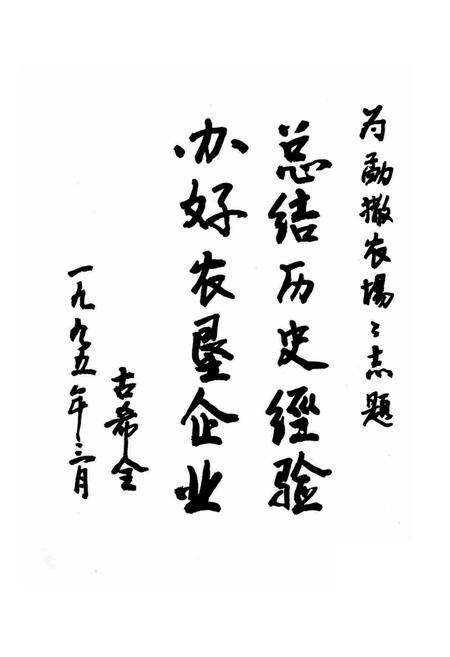 为勐撒农場〻志题
总结历史經验
办好农垦企业
古希全
一九九五年三月